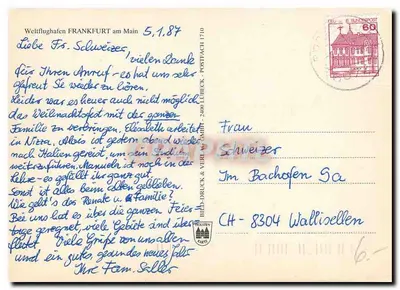 Weltflughafen FRANKFURT am Main
5.1.87
Liebe Fr. Schweizer,
vielen Dank
für Ihren Anruf – es hat uns sehr
gefreut Sie wieder zu hören.
Leider war es heuer auch nicht möglich
das Weihnachtsfest mit der ganzen
Familie zu verbringen. Elisabeth arbeitet
in Nizza, Alois ist gestern abend wieder
nach Italien gereist, um sein
weiterzuführen. Manuela ist noch in der
es gefällt ihr ganz gut.
Sonst ist alles beim alten geblieben.
Wie geht's der Renate u. Familie?
Bei uns hat es über die ganzen Feier-
tage geregnet, viele Gebiete sind über-
flutet. Viele Grüße von uns allen
und ein gutes, gesundes neues Jahr
Ihre Fam. Seller
BEIS-DRUCK & VERLAG GMBH · 2400 LÜBECK · POSTFACH 1710
60
Frau
Schweizer
Im Bachofen 5a
CH - 8304 Wallisellen
6.-